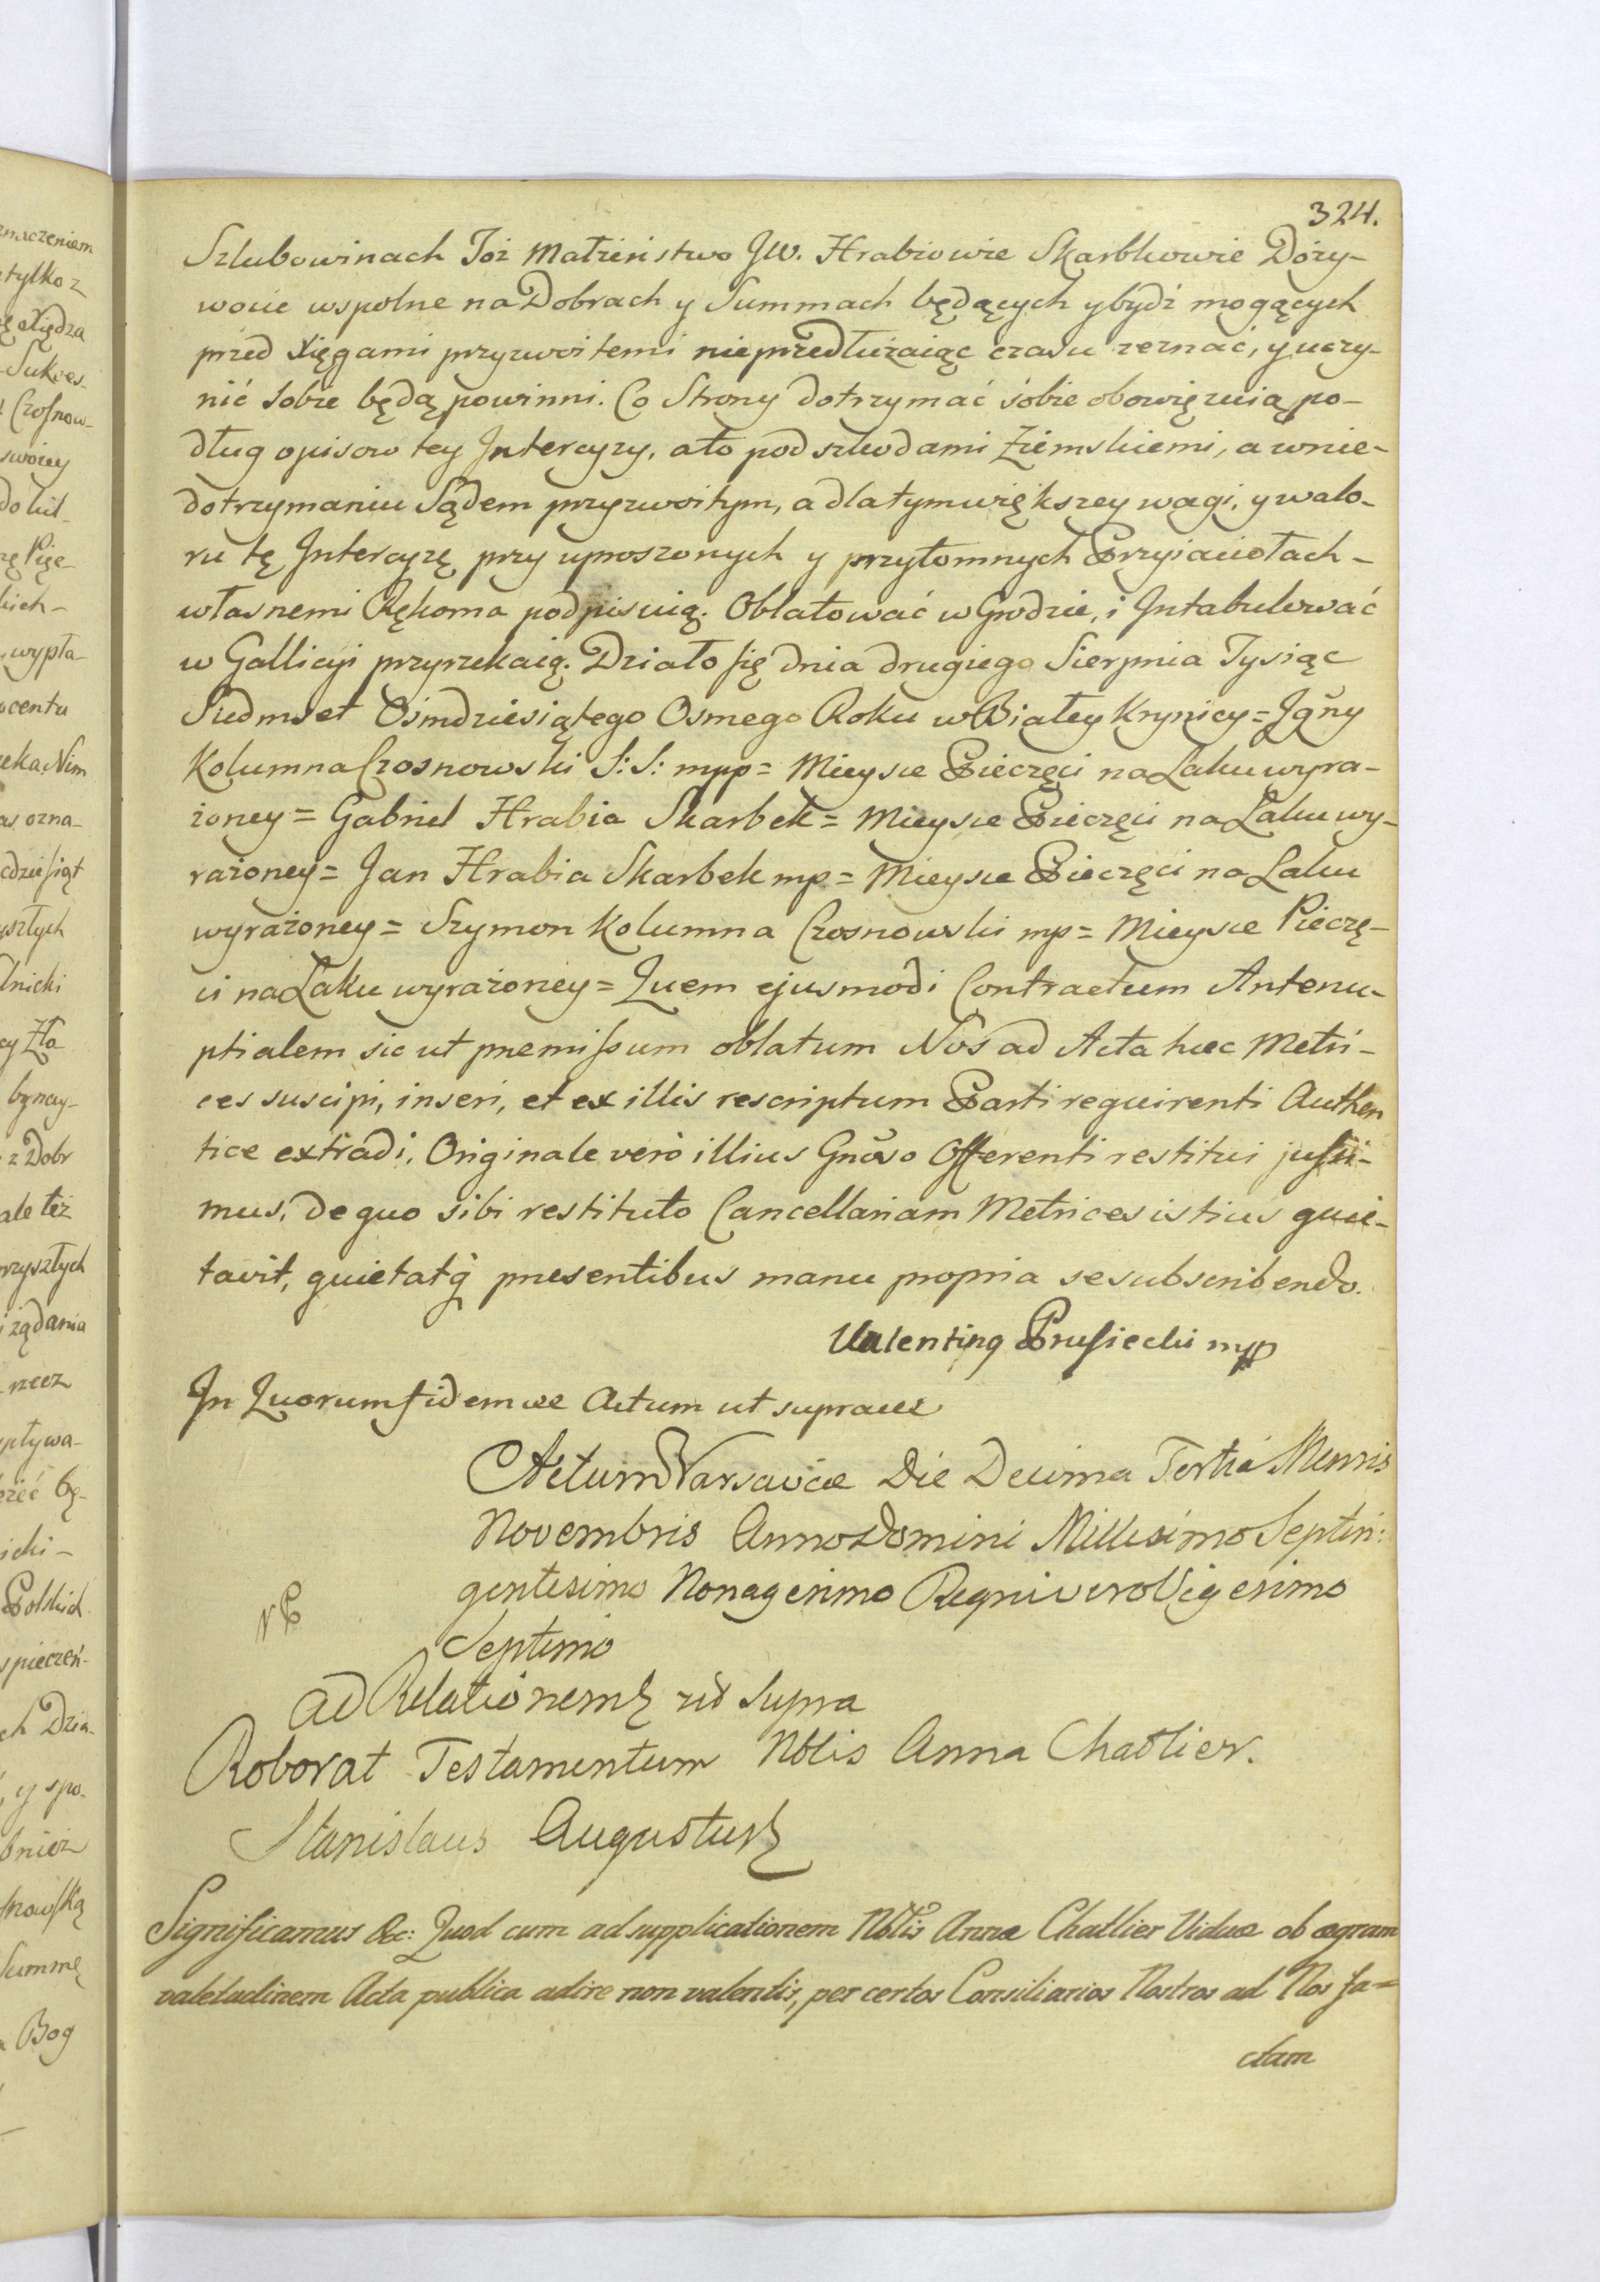 324.
Szlubowinach Toż Małżeństwo JW. Hrabiowie Skarbkowie Dóży-
wocie wspolne na Dobrach y Summach będących y bydź mogących
przed Xięgami przyzwoitemi nieprzedłużaiąc czasu zeznać, y uczy-
nić sobie będą powinni. Co Strony dotrzymać sobie obowięzuią po-
dług opisow tey Intercyzy, a to pod szkodami Ziemskiemi, a w nie-
dotrzymaniu Sądem przyzwoitym, a dla tym większey wagi, y walo-
ru tę Intercyzę przy uproszonych y przytomnych Przyiaciołach-
własnemi Rękoma podpisuią. Oblatować w Grodzie, i Intabulować
w Gallicyi przyrzekaią. Działo się dnia drugiego Sierpnia Tysiąc
Siedmset Osmdziesiątego Osmego Roku w Białey Krynicy = Jgn̄y
Kolumna Czosnowski S: S: mpp = Mieysce Pieczęci na Laku wyra-
żoney = Gabriel Hrabia Skarbek = Mieysce Pieczęci na Laku wy-
rażoney = Jan Hrabia Skarbek mp = Mieysce Pieczęci na Laku
wyrażoney = Szymon Kolumna Czosnowski mp = Mieysce Pieczę-
ci na Laku wyrażoney = Quem ejusmodi Contractum Antenu-
ptialem sic ut premissum oblatum Nos ad Acta hæc Metri-
ces suscipi, inseri, et ex illis rescriptum Parti requirenti Authen
tice extradi, Originale verò illius Gnoso Offerenti restitui jussi-
mus, de quo sibi restituto Cancellariam Metrices istius quie-
tavit, quietatq̀ presentibus manu propria se subscribendo.
Valentinq Prusiecki mpp
In Quorum fidem &c Actum ut supra &c
Actum Varsaviæ Die Decima Tertia Mensis
Novembris Anno Domini Millesimo Septin:
gentesimo Nonagesimo Regni vero Vigesimo
Septimo
Ad Relationem ut supra
Roborat Testamentum Nblis Anna Chatlier.
Stanislaus Augustus
Significamus &c: Quod cum ad supplicationem Nblis Annæ Chatlier Viduæ ob ægram
valetudinem Acta publica adire non valentis, per certos Consiliarios Nostros ad Nos fa=
ctam